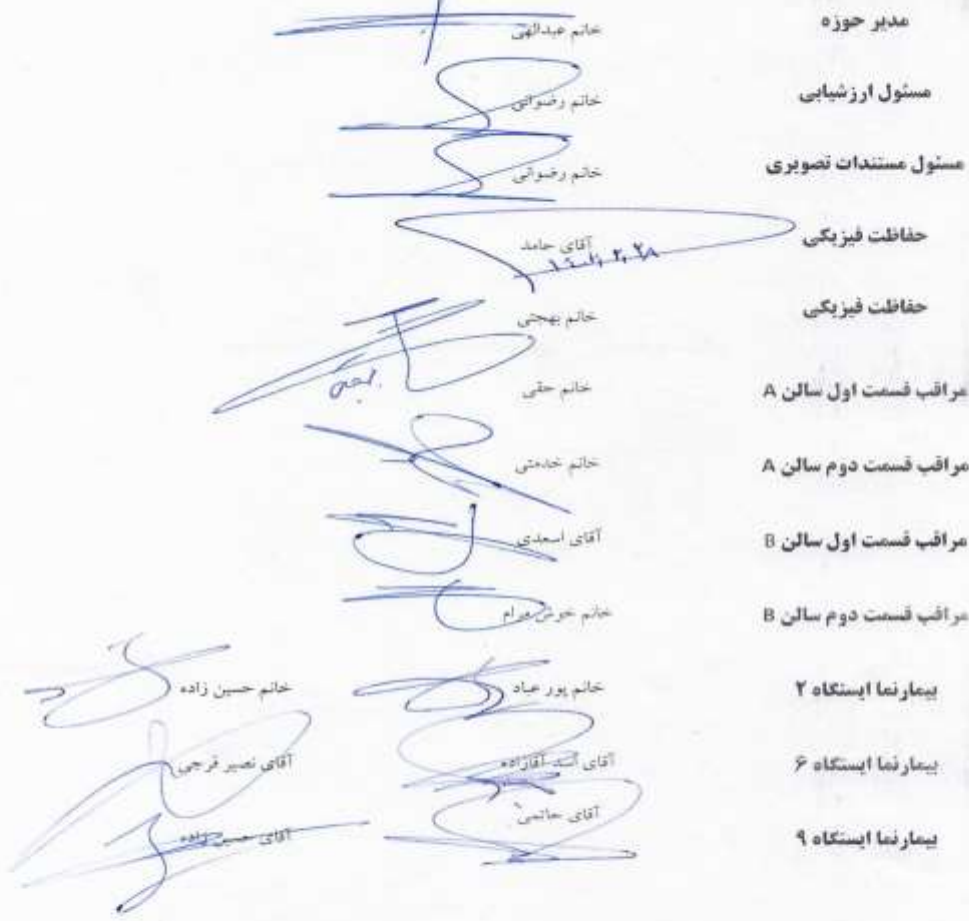 مدیر حوزه خانم عبدالهی
مسئول ارزشیابی خانم رضوانی
مسئول مستندات تصویری خانم رضوانی
حفاظت فیزیکی آقای حامد
حفاظت فیزیکی خانم بهجتی
مراقب قسمت اول سالن A خانم حقی
مراقب قسمت دوم سالن A خانم خدمتی
مراقب قسمت اول سالن B آقای اسعدی
مراقب قسمت دوم سالن B خانم خوش مرام
بیمارنما ایستگاه ۲ خانم پور عباد خانم حسین زاده
بیمارنما ایستگاه ۶ آقای اسد آقازاده آقای نصیر فرجی
بیمارنما ایستگاه ۹ آقای حاتمی آقای حسین زاده